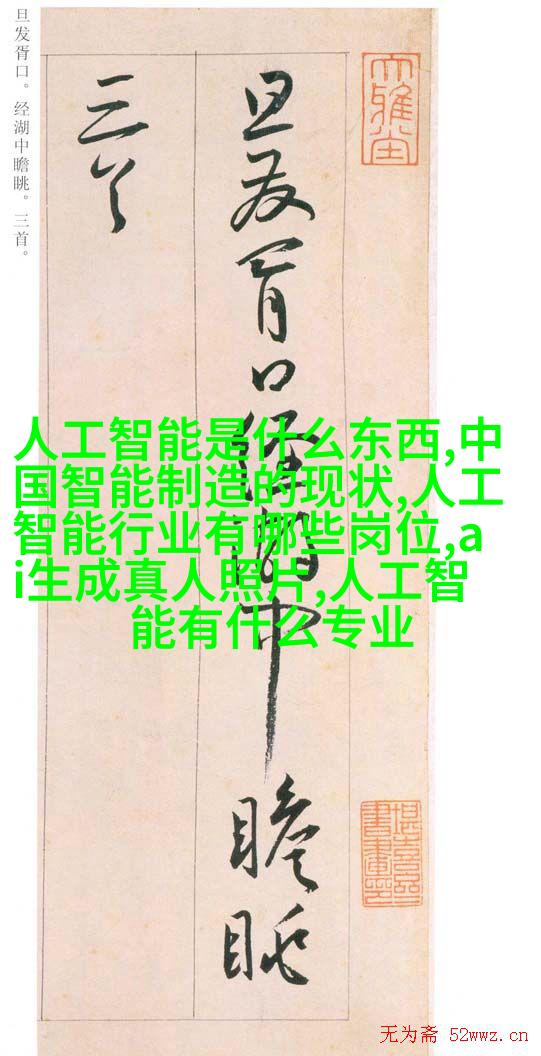 旦发胥口。经湖中瞻眺。三首。
旦發胥口經湖中瞻眺
三首
人工智能是什么东西,中
国智能制造的现状,人工
智能行业有哪些岗位,a
i生成真人照片,人工智
能有什么专业
堪喜齋書畫印
无为斋 52wwz.cn